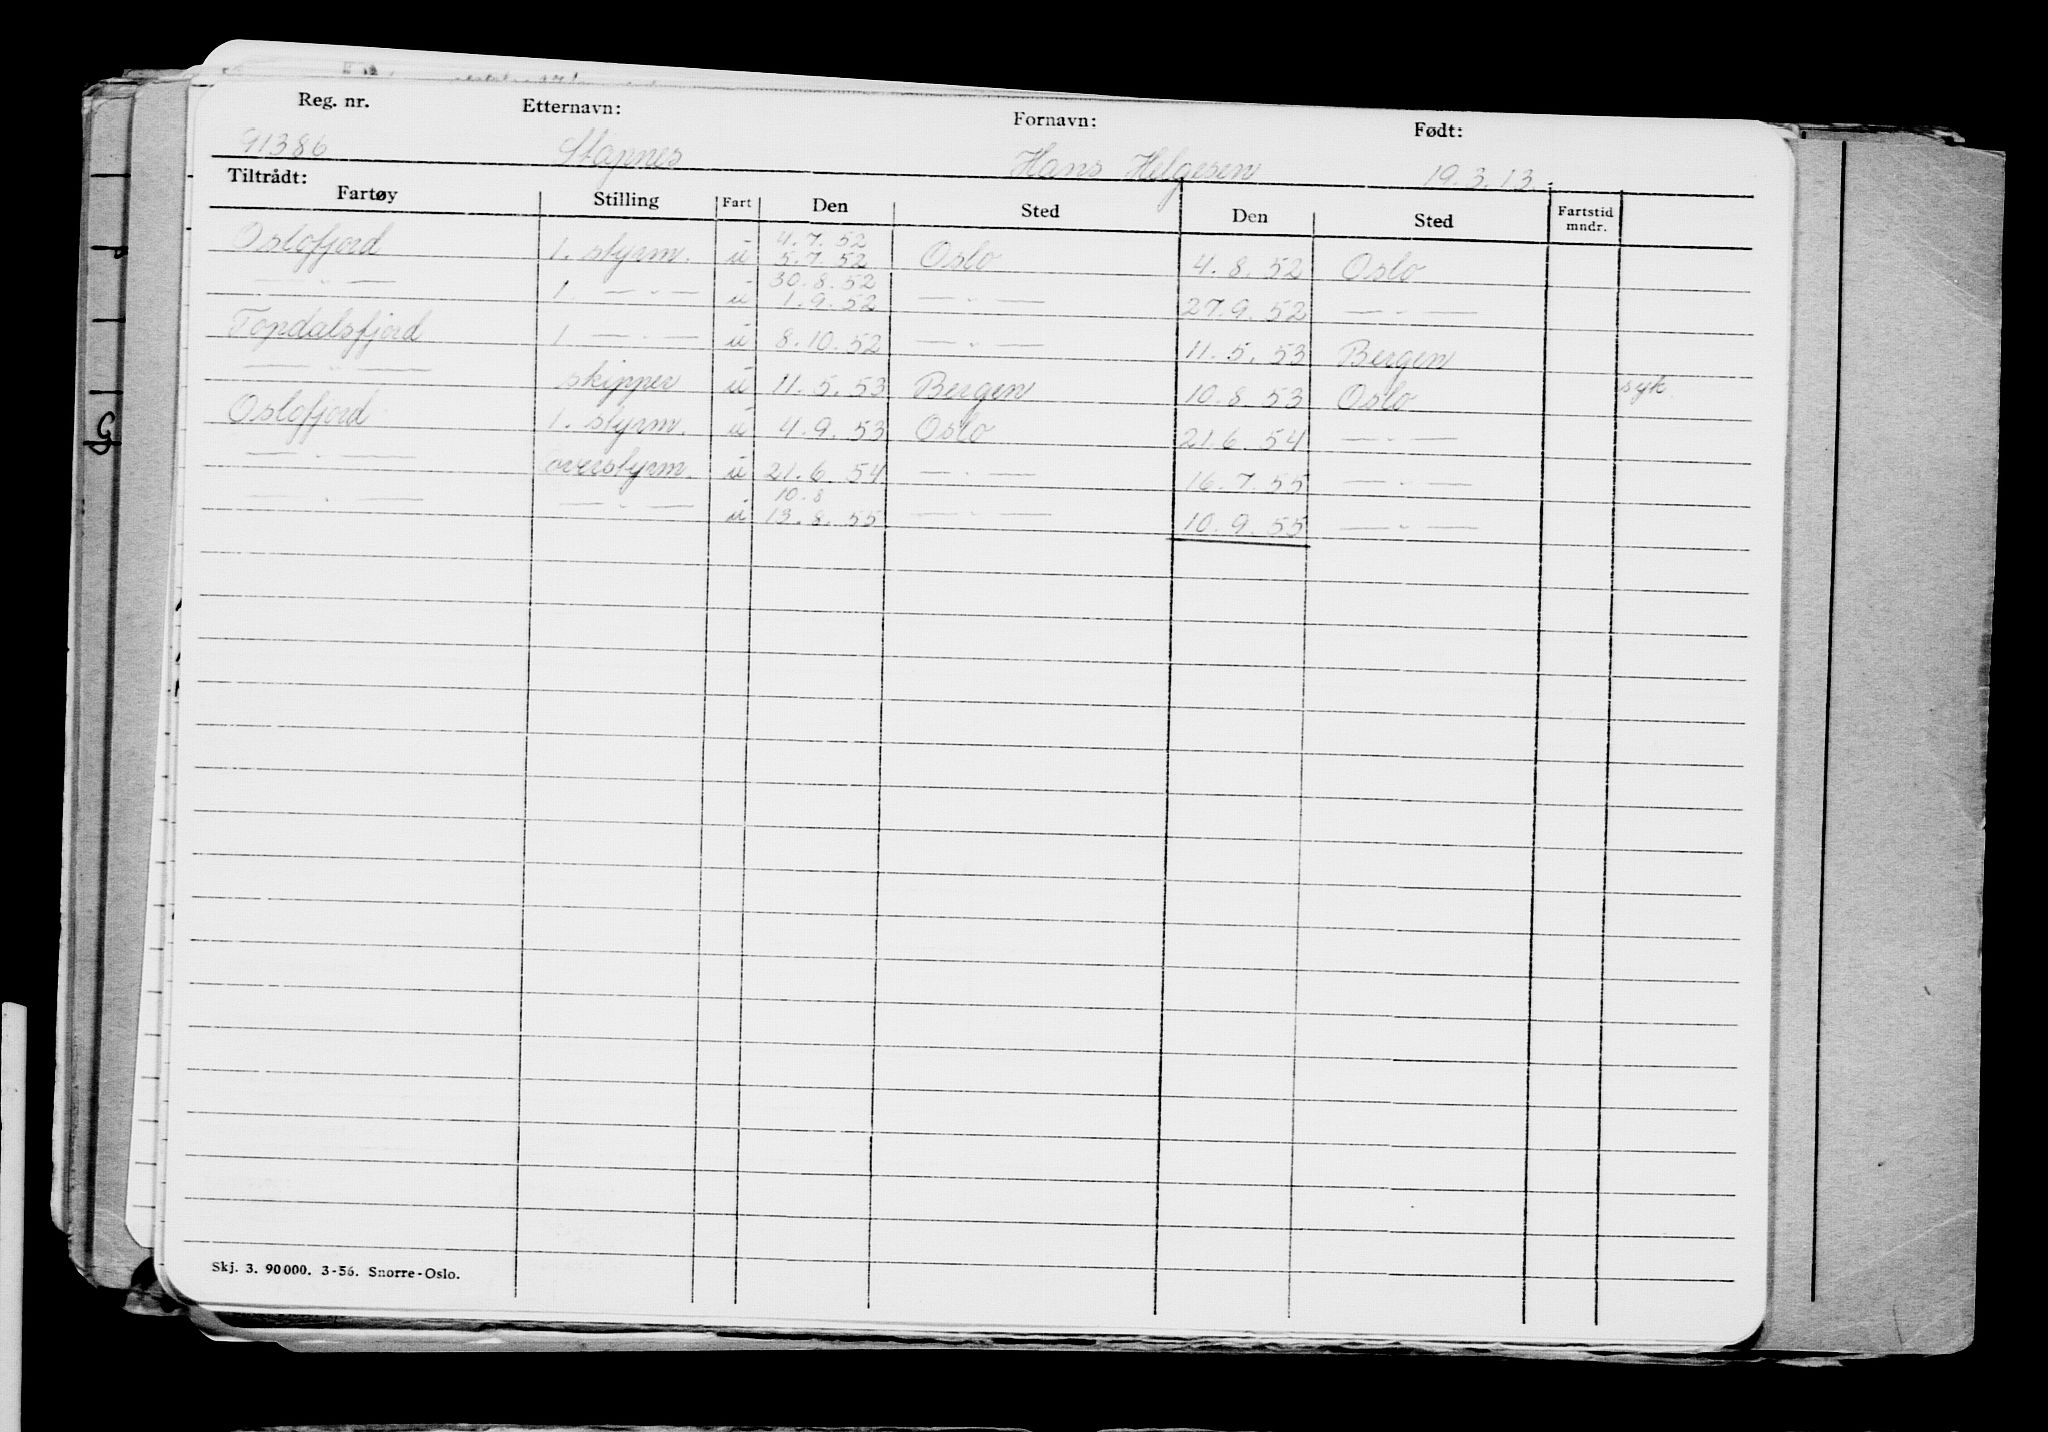 Reg. nr. Etternavn: Fornavn: Født:
91386 Stapnes Hans Helgesen 19.3.13.
Tiltrådt:
Fartøy Stilling Fart Den Sted Den Sted Fartstid mndr.
Oslofjord 1. styrm. u 4.7.52 5.7.52 Oslo 4.8.52 Oslo
— " — 1. — " — u 30.8.52 1.9.52 — " — 27.9.52 — " —
Topdalsfjord 1 — " — u 8.10.52 — " — 11.5.53 Bergen
— " — skipper u 11.5.53 Bergen 10.8.53 Oslo syk.
Oslofjord 1. styrm. u 4.9.53 Oslo 21.6.54 — " —
— " — overstyrm. u 21.6.54 — " — 16.7.55 — " —
— " — — " — u 10.8 13.8.55 — " — 10.9.55 — " —
Skj. 3. 90000. 3-56. Snorre-Oslo.